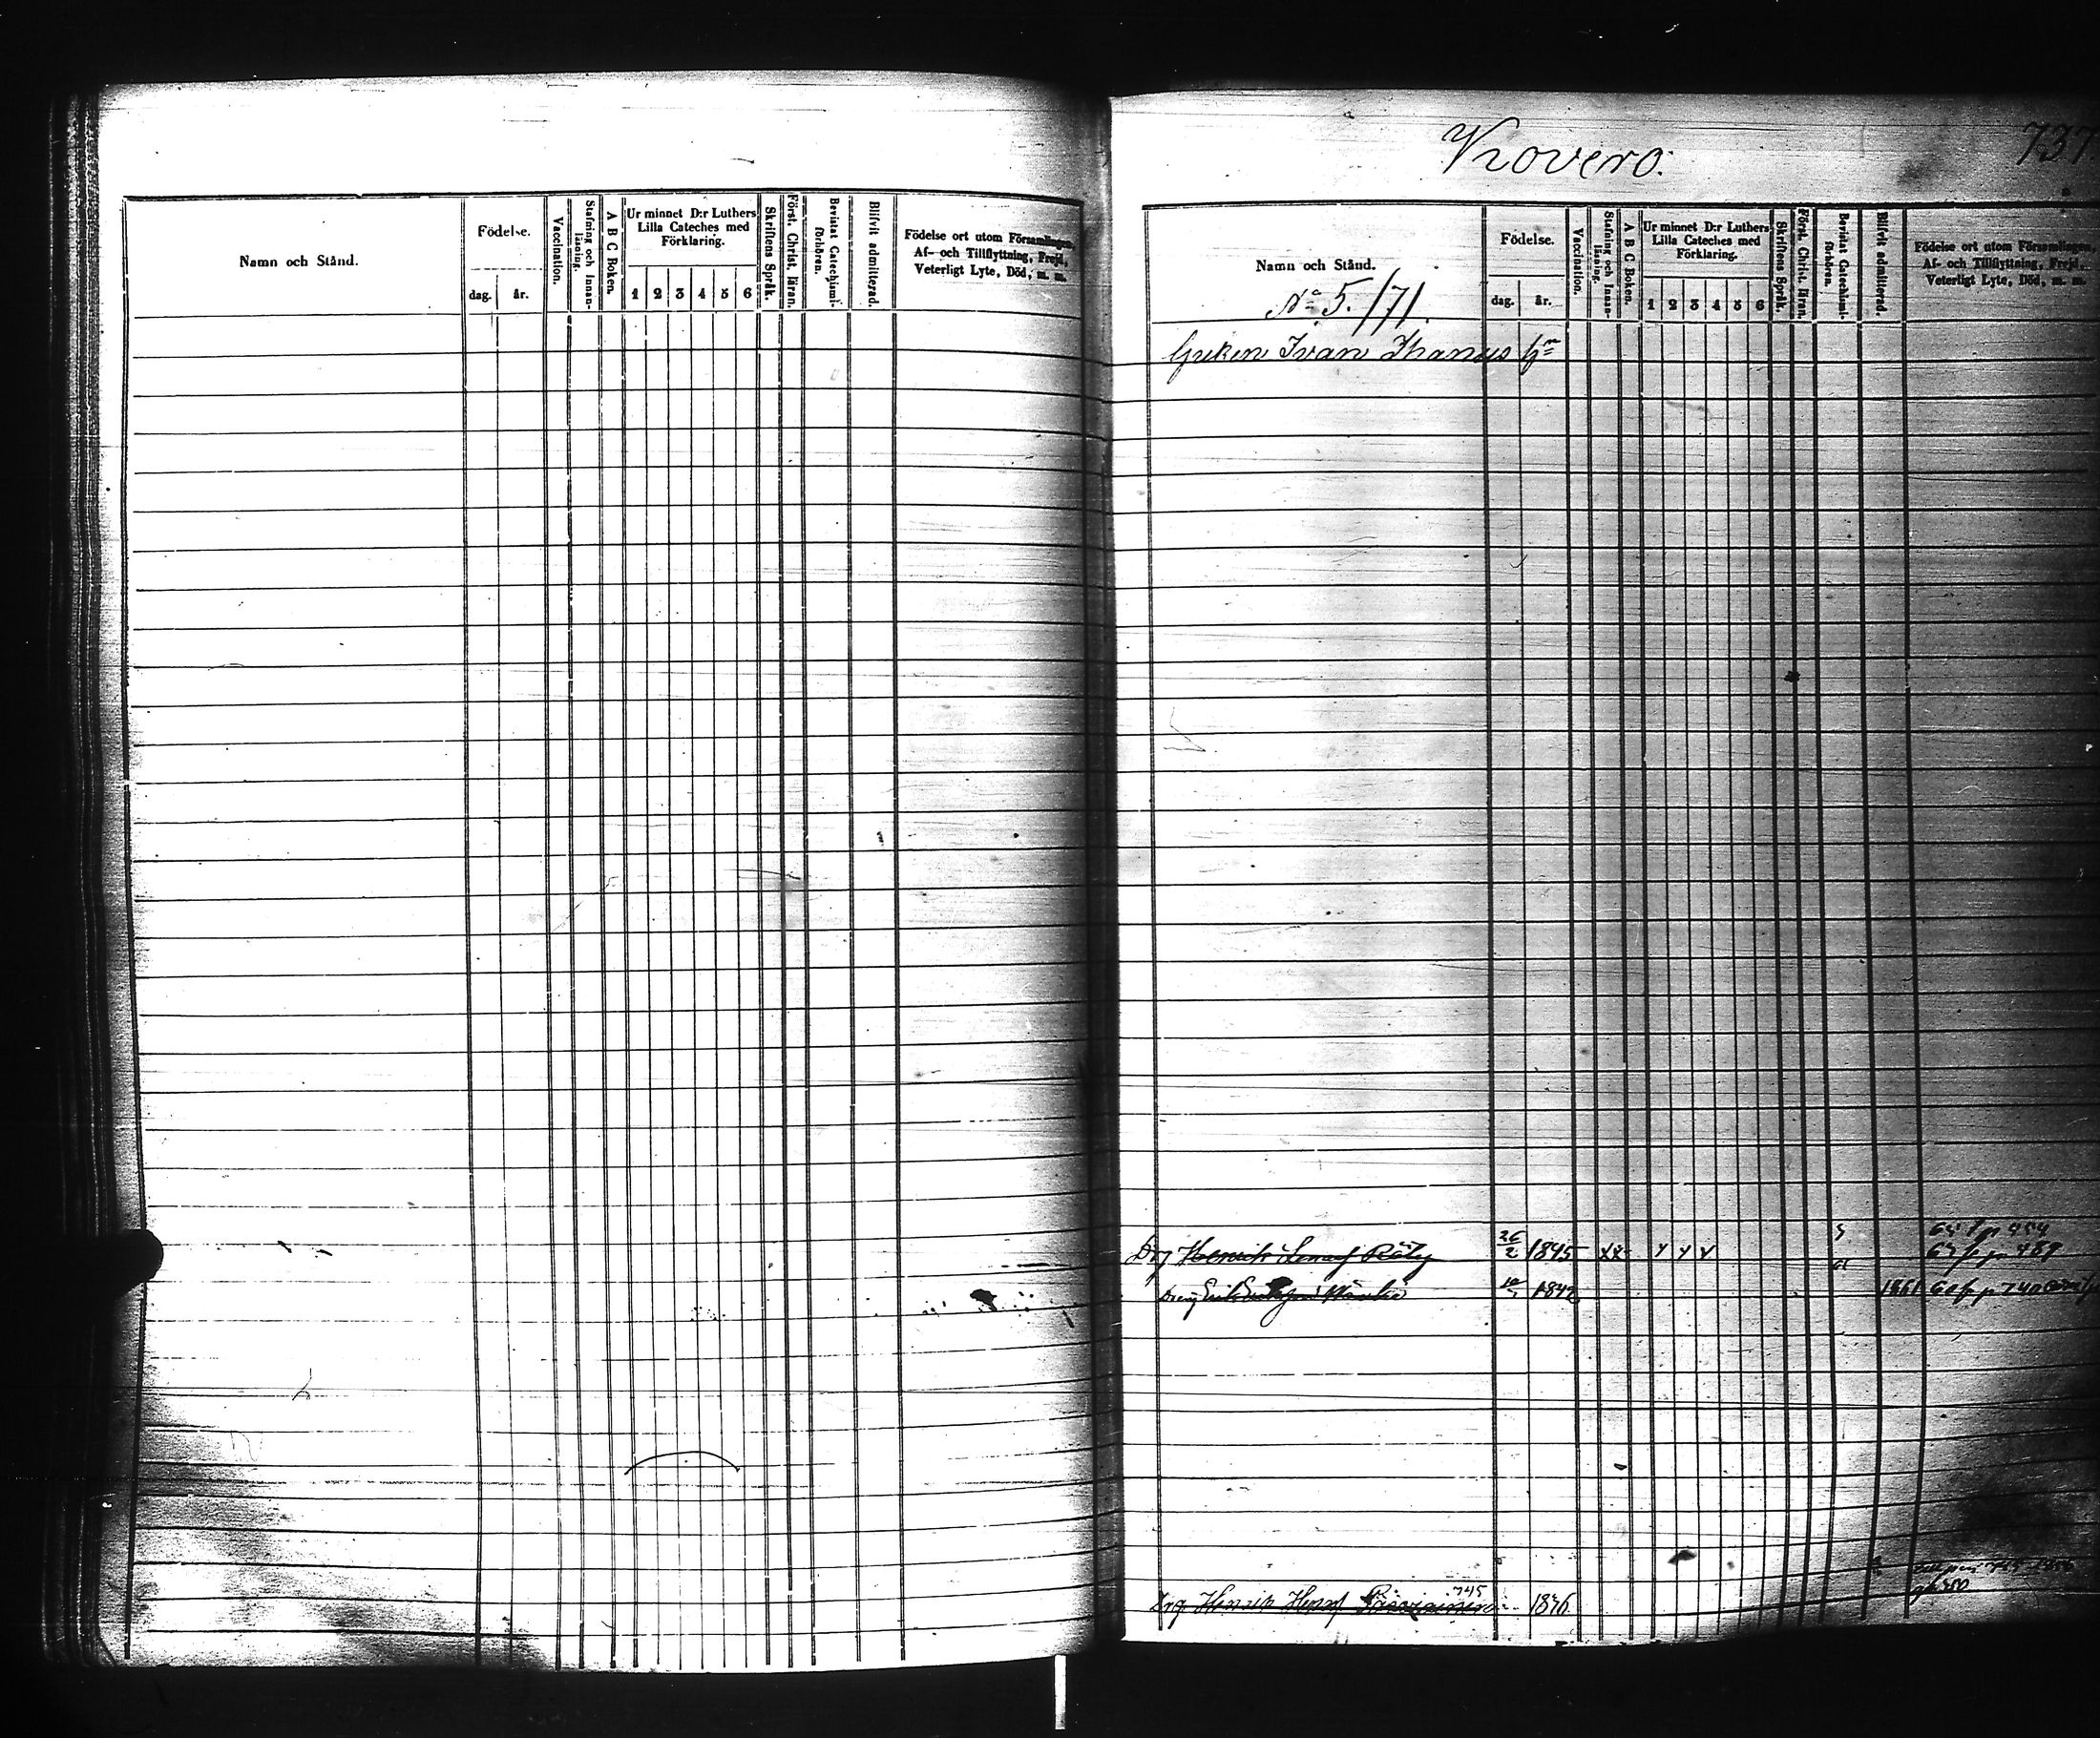 Namn och Stånd.
Födelse.
dag.
år.
Vaccination.
Stafning och Innanläsning.
A B C Boken.
Ur minnet D:r Luthers
Lilla Cateches med
Förklaring.
1 2 3 4 5 6
Skriftens Språk.
Först. Christ. läran.
Bevistat Catechismi-
förhören.
Blifvit admitterad.
Födelse ort utom Församlingen,
Af- och Tillflyttning, Frejd,
Veterligt Lyte, Död, m. m.
Kovero.
737
Namn och Stånd.
Nº 5./71.
Födelse.
dag.
år.
Vaccination.
Stafning och Innanläsning.
A B C Boken.
Ur minnet D:r Luthers
Lilla Cateches med
Förklaring.
1 2 3 4 5 6
Skriftens Språk.
Först. Christ. läran.
Bevistat Catechismi-
förhören.
Blifvit admitterad.
Födelse ort utom Församlingen,
Af- och Tillflyttning, Frejd,
Veterligt Lyte, Död, m. m.
Greken Ivan Ihanus hn
Drg Henrik Räty 26/2 1845
Dreng Erik 1842 1861
Drg Henrik Henrs 745 1846